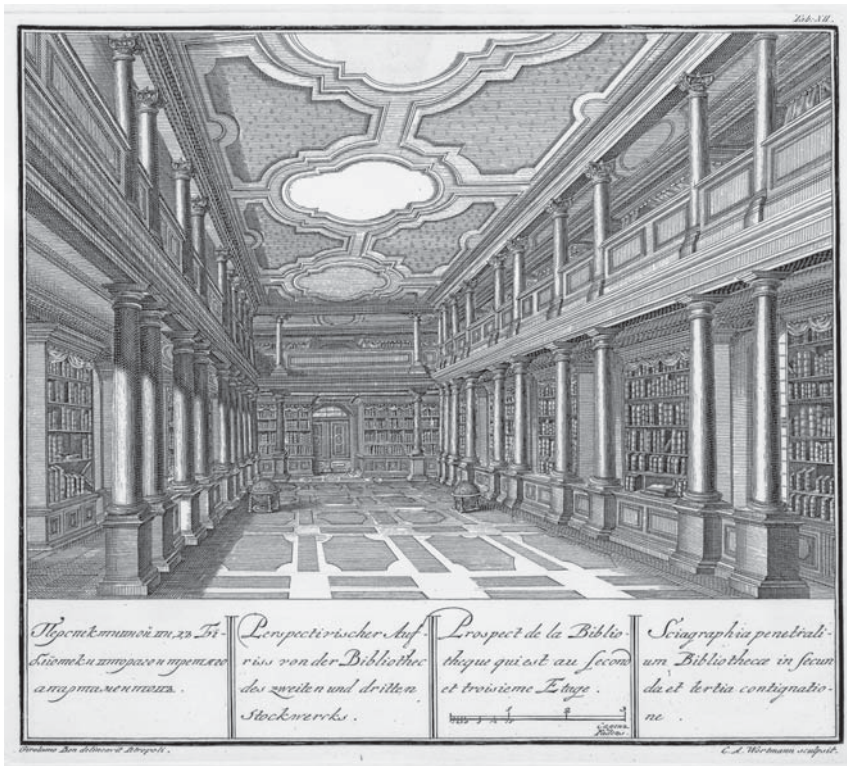 Tab: XII.
Перспективной видъ Би-
блїотеки втораго и третьяго
апартаментовъ.
Perspectivischer Auf-
riss von der Bibliothec
des zweiten und dritten
Stockwercks.
Prospect de la Biblio-
theque qui est au second
et troisieme Etage.
Sciagraphia penetrali-
um Bibliothecæ in secun
da et tertia contignatio-
ne.
Girolamo Bon delineavit Petropoli.
C. A. Wortmann sculpsit.